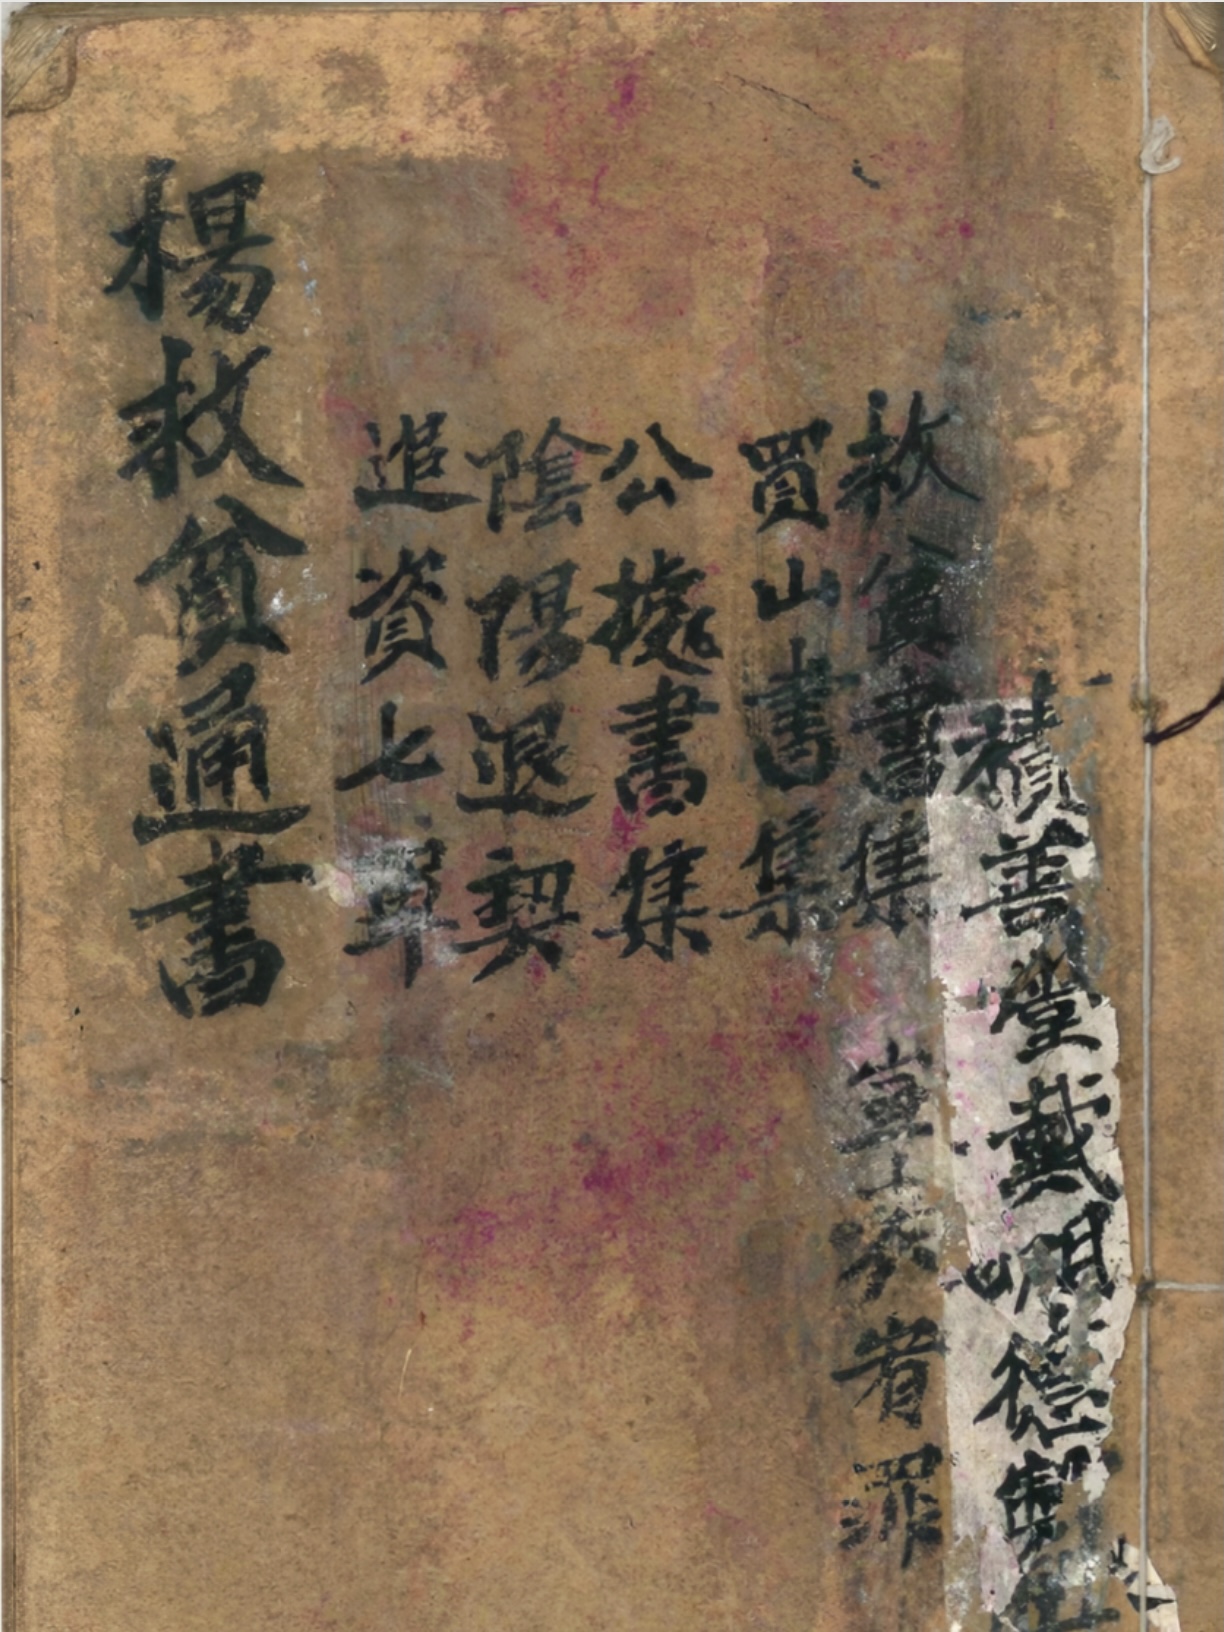 積善堂戴明德
救貧書集
者罪
買山書集
公據書集
陰陽退契
追資七單
楊救貧通書